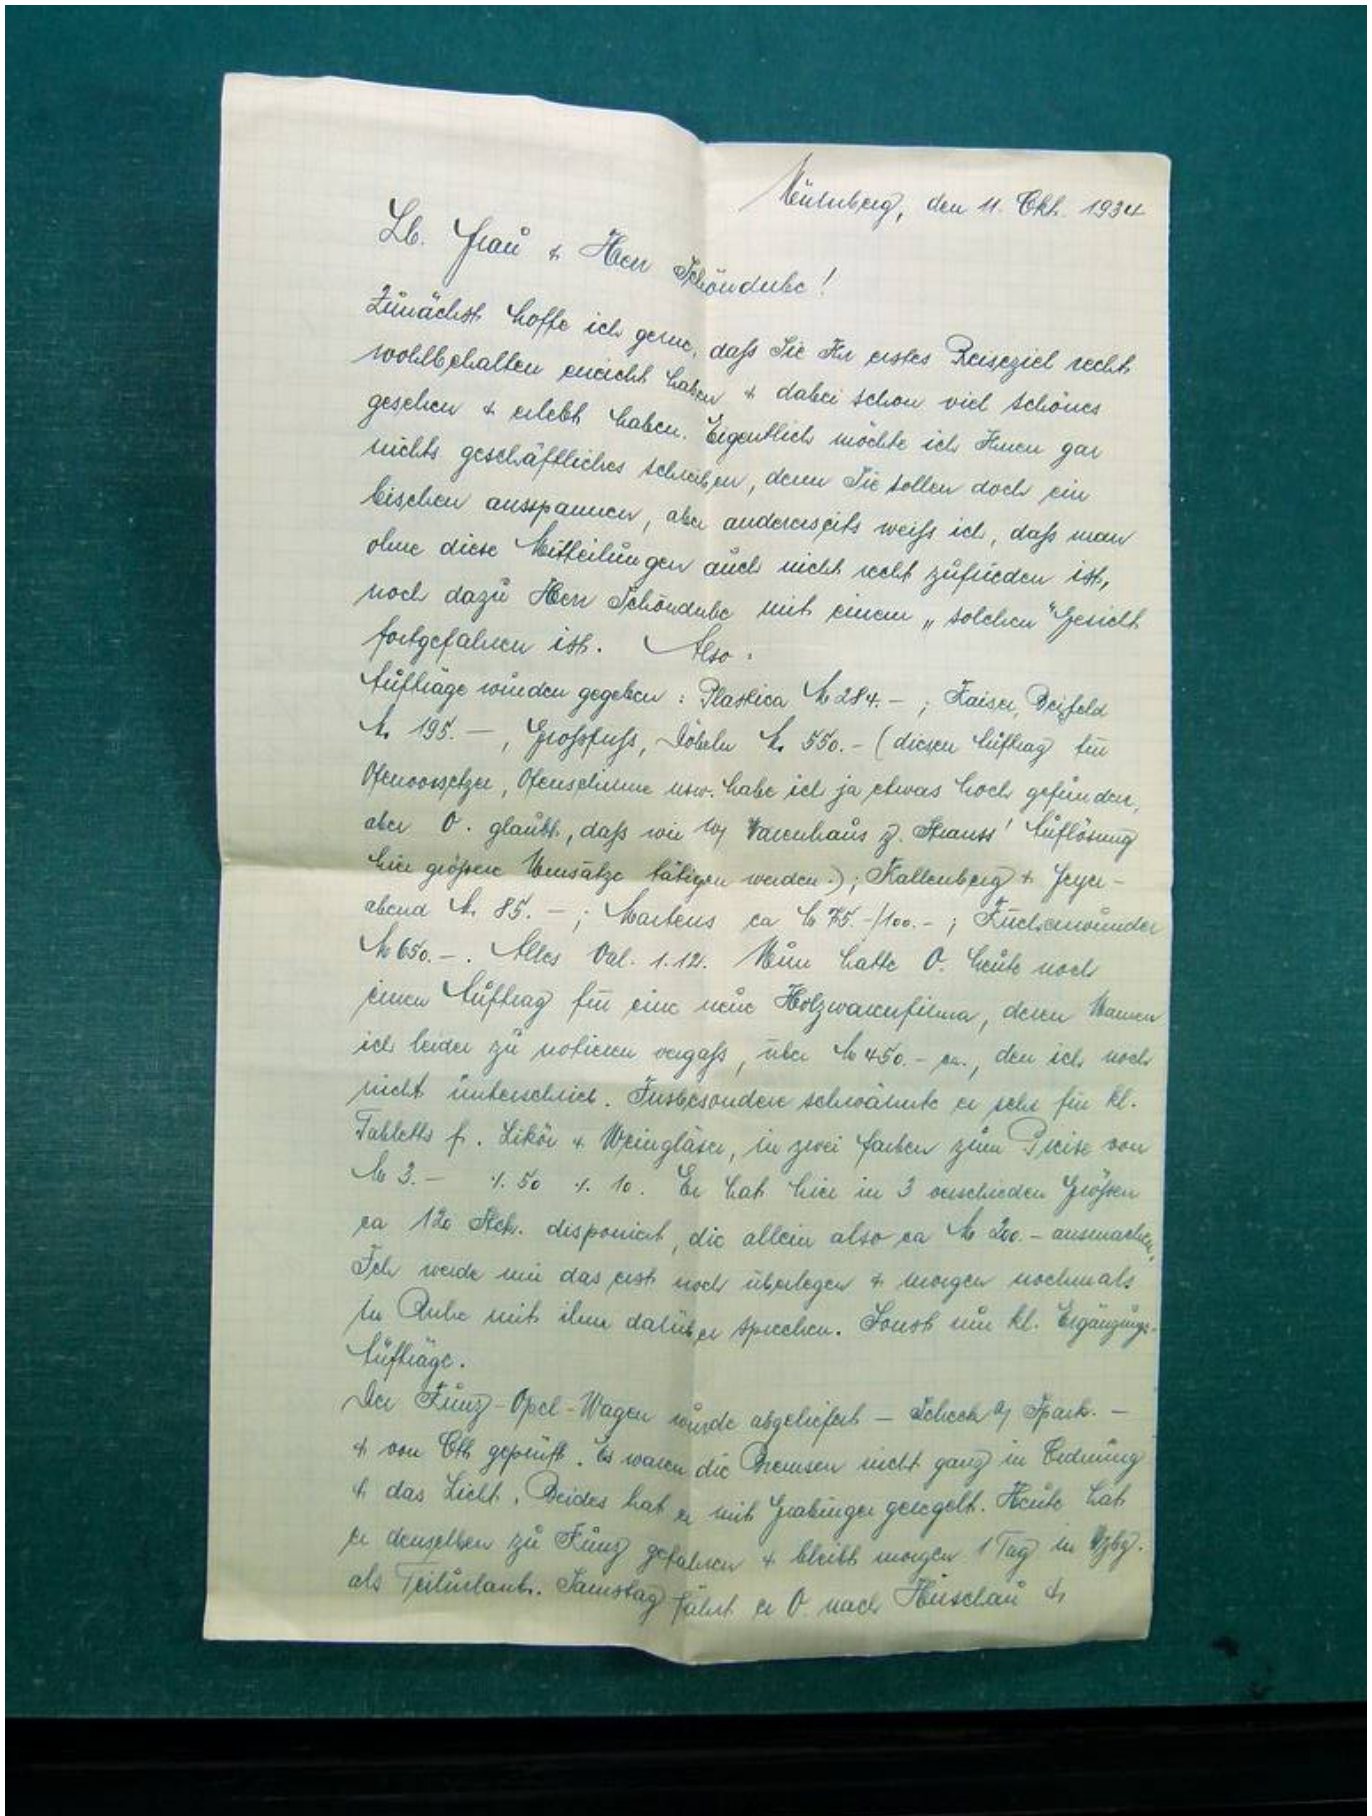 Nürnberg, den 11. Okt. 1934
Lb. Frau & Herr Schöndube!
Zunächst hoffe ich gerne, daß Sie Ihr erstes Reiseziel recht
wohlbehalten erreicht haben & dabei schon viel schönes
gesehen & erlebt haben. Eigentlich möchte ich Ihnen gar
nichts geschäftliches schreiben, denn Sie sollen doch ein
bischen ausspannen, aber andererseits weiß ich, daß man
ohne diese Mitteilungen auch nicht recht zufrieden ist,
noch dazu Herr Schöndube mit einem „solchen" Gesicht
fortgefahren ist. Also:
Aufträge wurden gegeben: Plastica M 284.-; Kaiser,
M. 195.-, Großfuß, Döbeln M. 550.- (diesen Auftrag für
Ofenvorsetzer, Ofenschirme usw. habe ich ja etwas hoch gefunden,
aber O. glaubt, daß wir Warenhaus Strauss' Auflösung
hier größere Umsätze tätigen werden.); Kallenberg & Feyer-
abend M. 85.-; Martens ca M 75.-/100.-;
M 650.-. Alles Val. 1.12. Nun hatte O. heute noch
einen Auftrag für eine neue Holzwarenfirma, deren Namen
ich leider zu notieren vergaß, über M 450.- ca., den ich noch
nicht unterschrieb. Insbesondere schwärmte er sehr für kl.
Tabletts f. Likör & Weingläser, in zwei Farben zum Preise von
M 3.- ./. 50 ./. 10. Er hat hier in 3 verschieden Größen
ca 120 Stck. disponiert, die allein also ca M 200.- ausmachen.
Ich werde mir das erst noch überlegen & morgen nochmals
in Ruhe mit ihm darüber sprechen. Sonst nur kl. Ergänzungs-
Aufträge.
Der Künz-Opel-Wagen wurde abgeliefert - Scheck a/ Spark. -
& von Oth geprüft. Es waren die Bremsen nicht ganz in Ordnung
& das Licht. Beides hat er mit Grabinger geregelt. Heute hat
er denselben zu Künz gefahren & bleibt morgen 1 Tag in Wzbg.
als Teilurlaub. Samstag fährt er O. nach Hirschau &